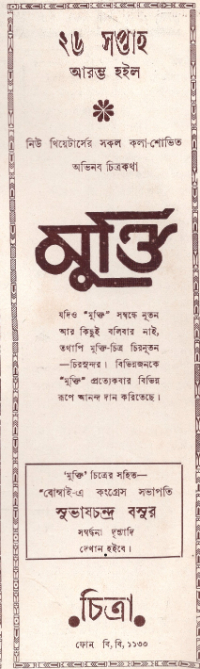 ২৬ সপ্তাহ
আরম্ভ হইল
নিউ থিয়েটার্সের সকল কলা-শোভিত
অভিনব চিত্রকথা
মুক্তি
যদিও "মুক্তি" সম্বন্ধে নূতন
আর কিছুই বলিবার নাই,
তথাপি মুক্তি-চিত্র চিরনূতন
—চিরসুন্দর। বিভিন্নজনকে
"মুক্তি" প্রত্যেকবার বিভিন্ন
রূপে আনন্দ দান করিতেছে।
'মুক্তি' চিত্রের সহিত—
"বোম্বাই-এ কংগ্রেস সভাপতি
সুভাষচন্দ্র বসুর
সম্বর্দ্ধনা দৃশ্যাদি
দেখান হইবে।
চিত্রা
ফোন বি, বি, ১১৩৩